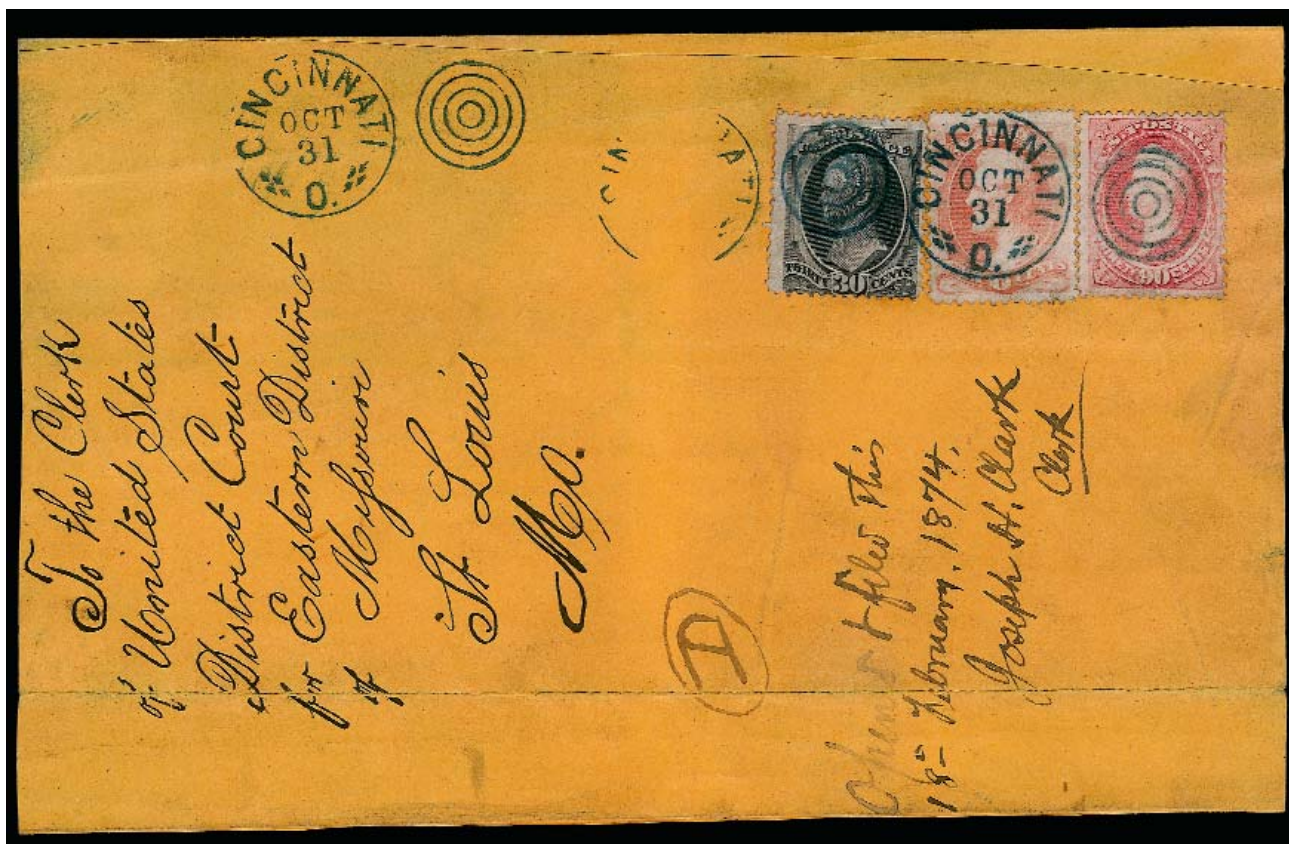 CINCINNATI
OCT
31
O.
CIN NATI
CINCINNATI
OCT
31
O.
THIRTY 30 CENTS
90
To the Clerk
of United States
District Court
for Eastern District
of Missouri
St Louis
Mo.
D
Opened & filed this
18= February. 1874.
Joseph H. Clark
Clerk